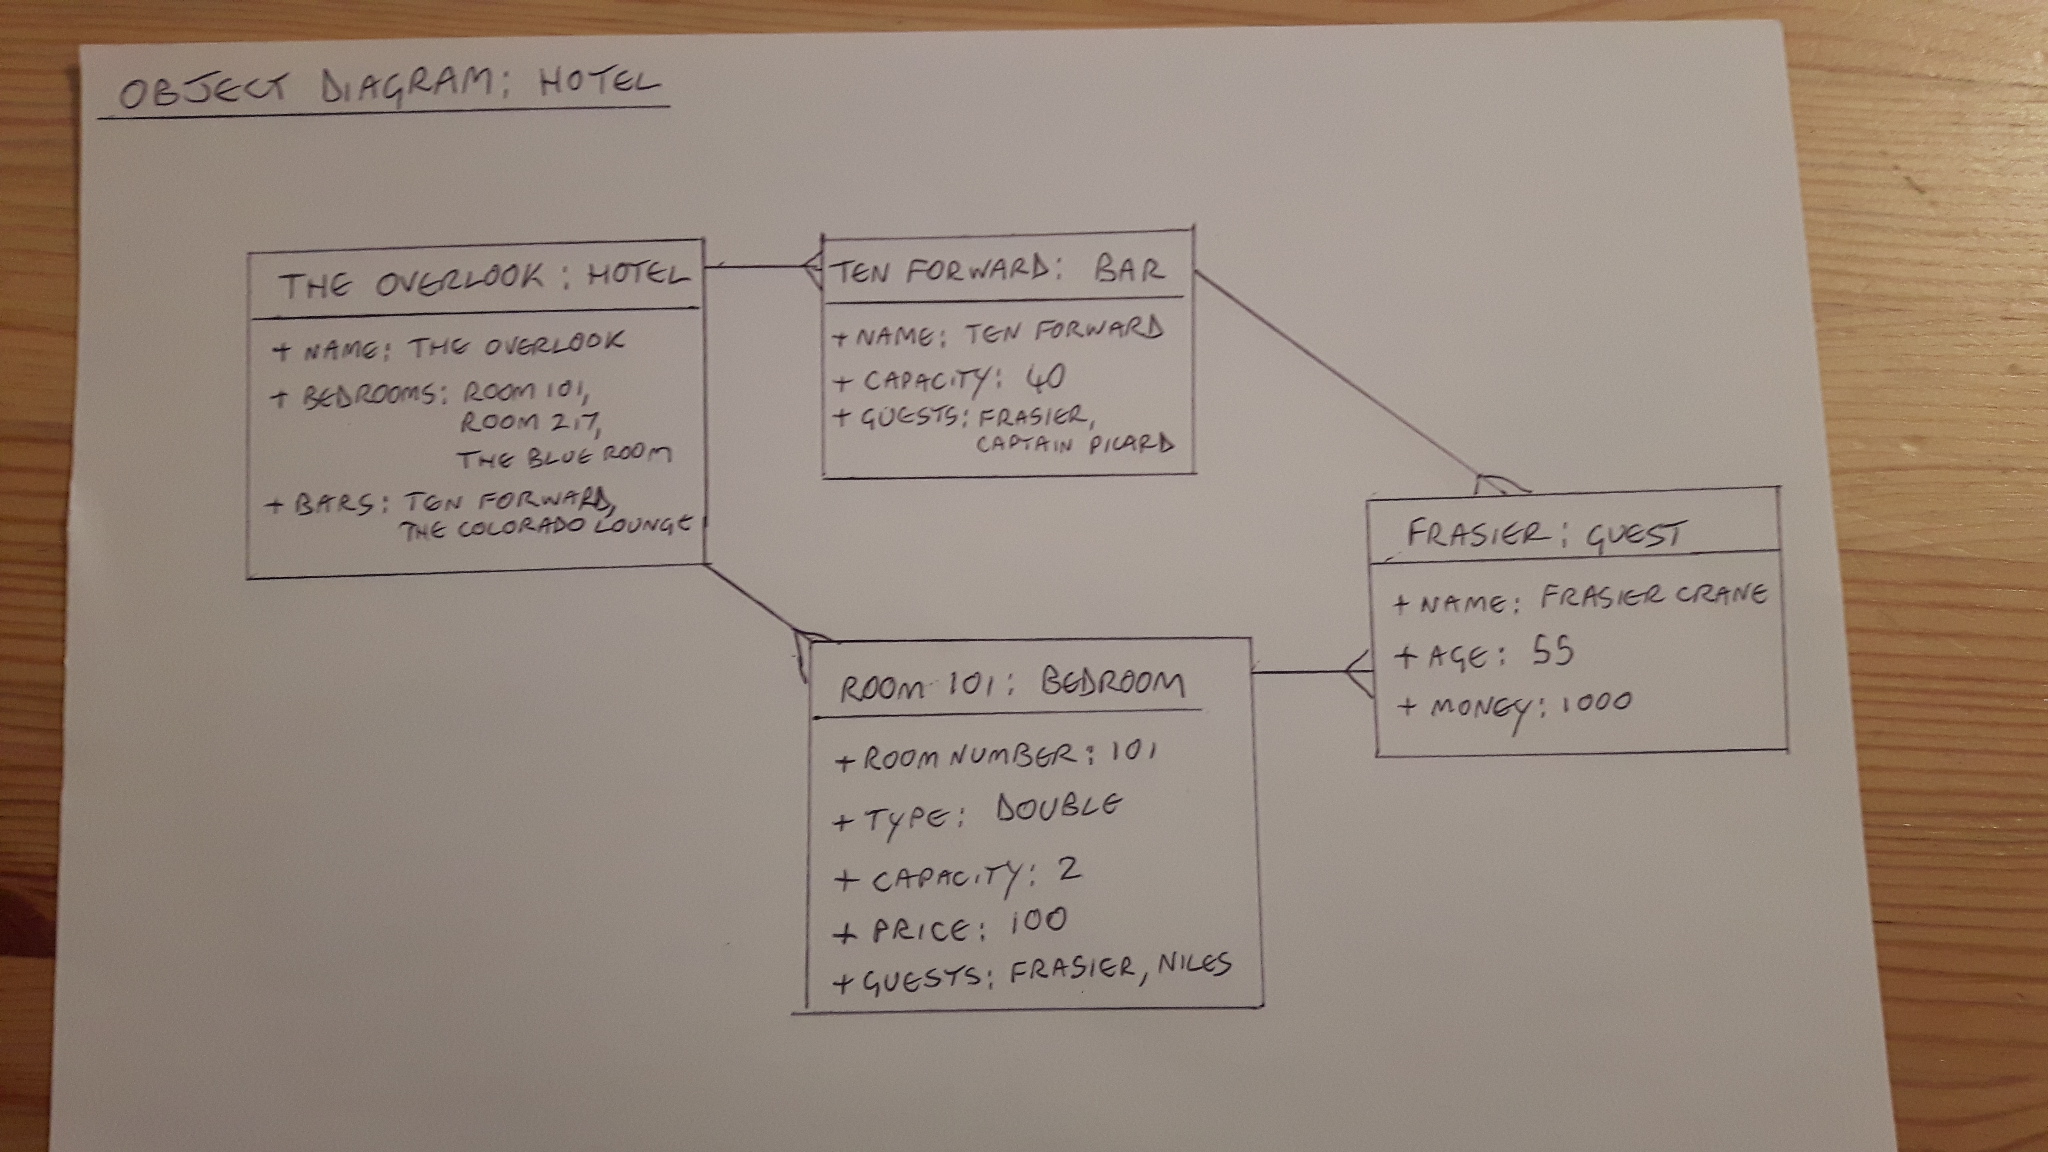 OBJECT DIAGRAM: HOTEL
THE OVERLOOK : HOTEL
+ NAME: THE OVERLOOK
+ BEDROOMS: ROOM 101,
ROOM 217,
THE BLUE ROOM
+ BARS: TEN FORWARD,
THE COLORADO LOUNGE
TEN FORWARD: BAR
+ NAME: TEN FORWARD
+ CAPACITY: 40
+ GUESTS: FRASIER,
CAPTAIN PICARD
FRASIER: GUEST
+ NAME: FRASIER CRANE
+ AGE: 55
+ MONEY: 1000
ROOM 101: BEDROOM
+ ROOM NUMBER: 101
+ TYPE: DOUBLE
+ CAPACITY: 2
+ PRICE: 100
+ GUESTS: FRASIER, NILES